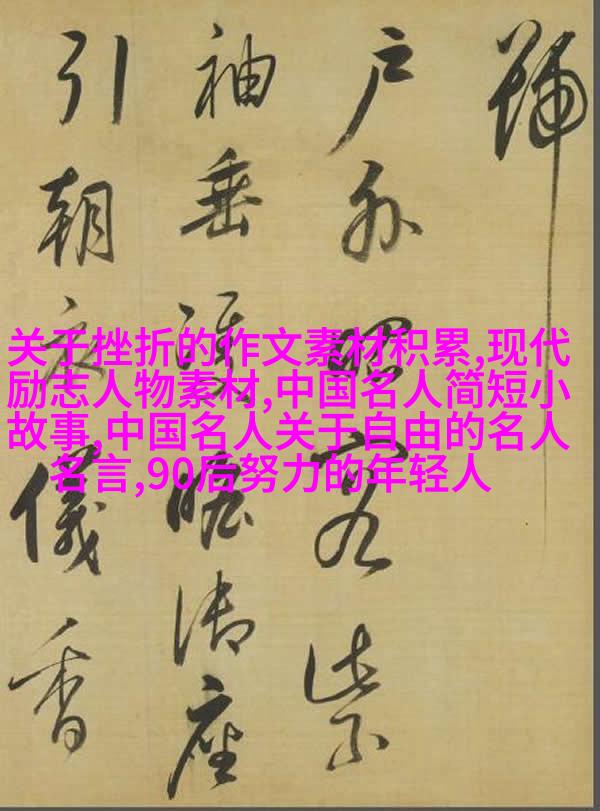 户外昭容紫
袖垂雙瞻御座
引朝儀香
关于挫折的作文素材积累,现代
励志人物素材,中国名人简短小
故事,中国名人关于自由的名人
名言,90后努力的年轻人